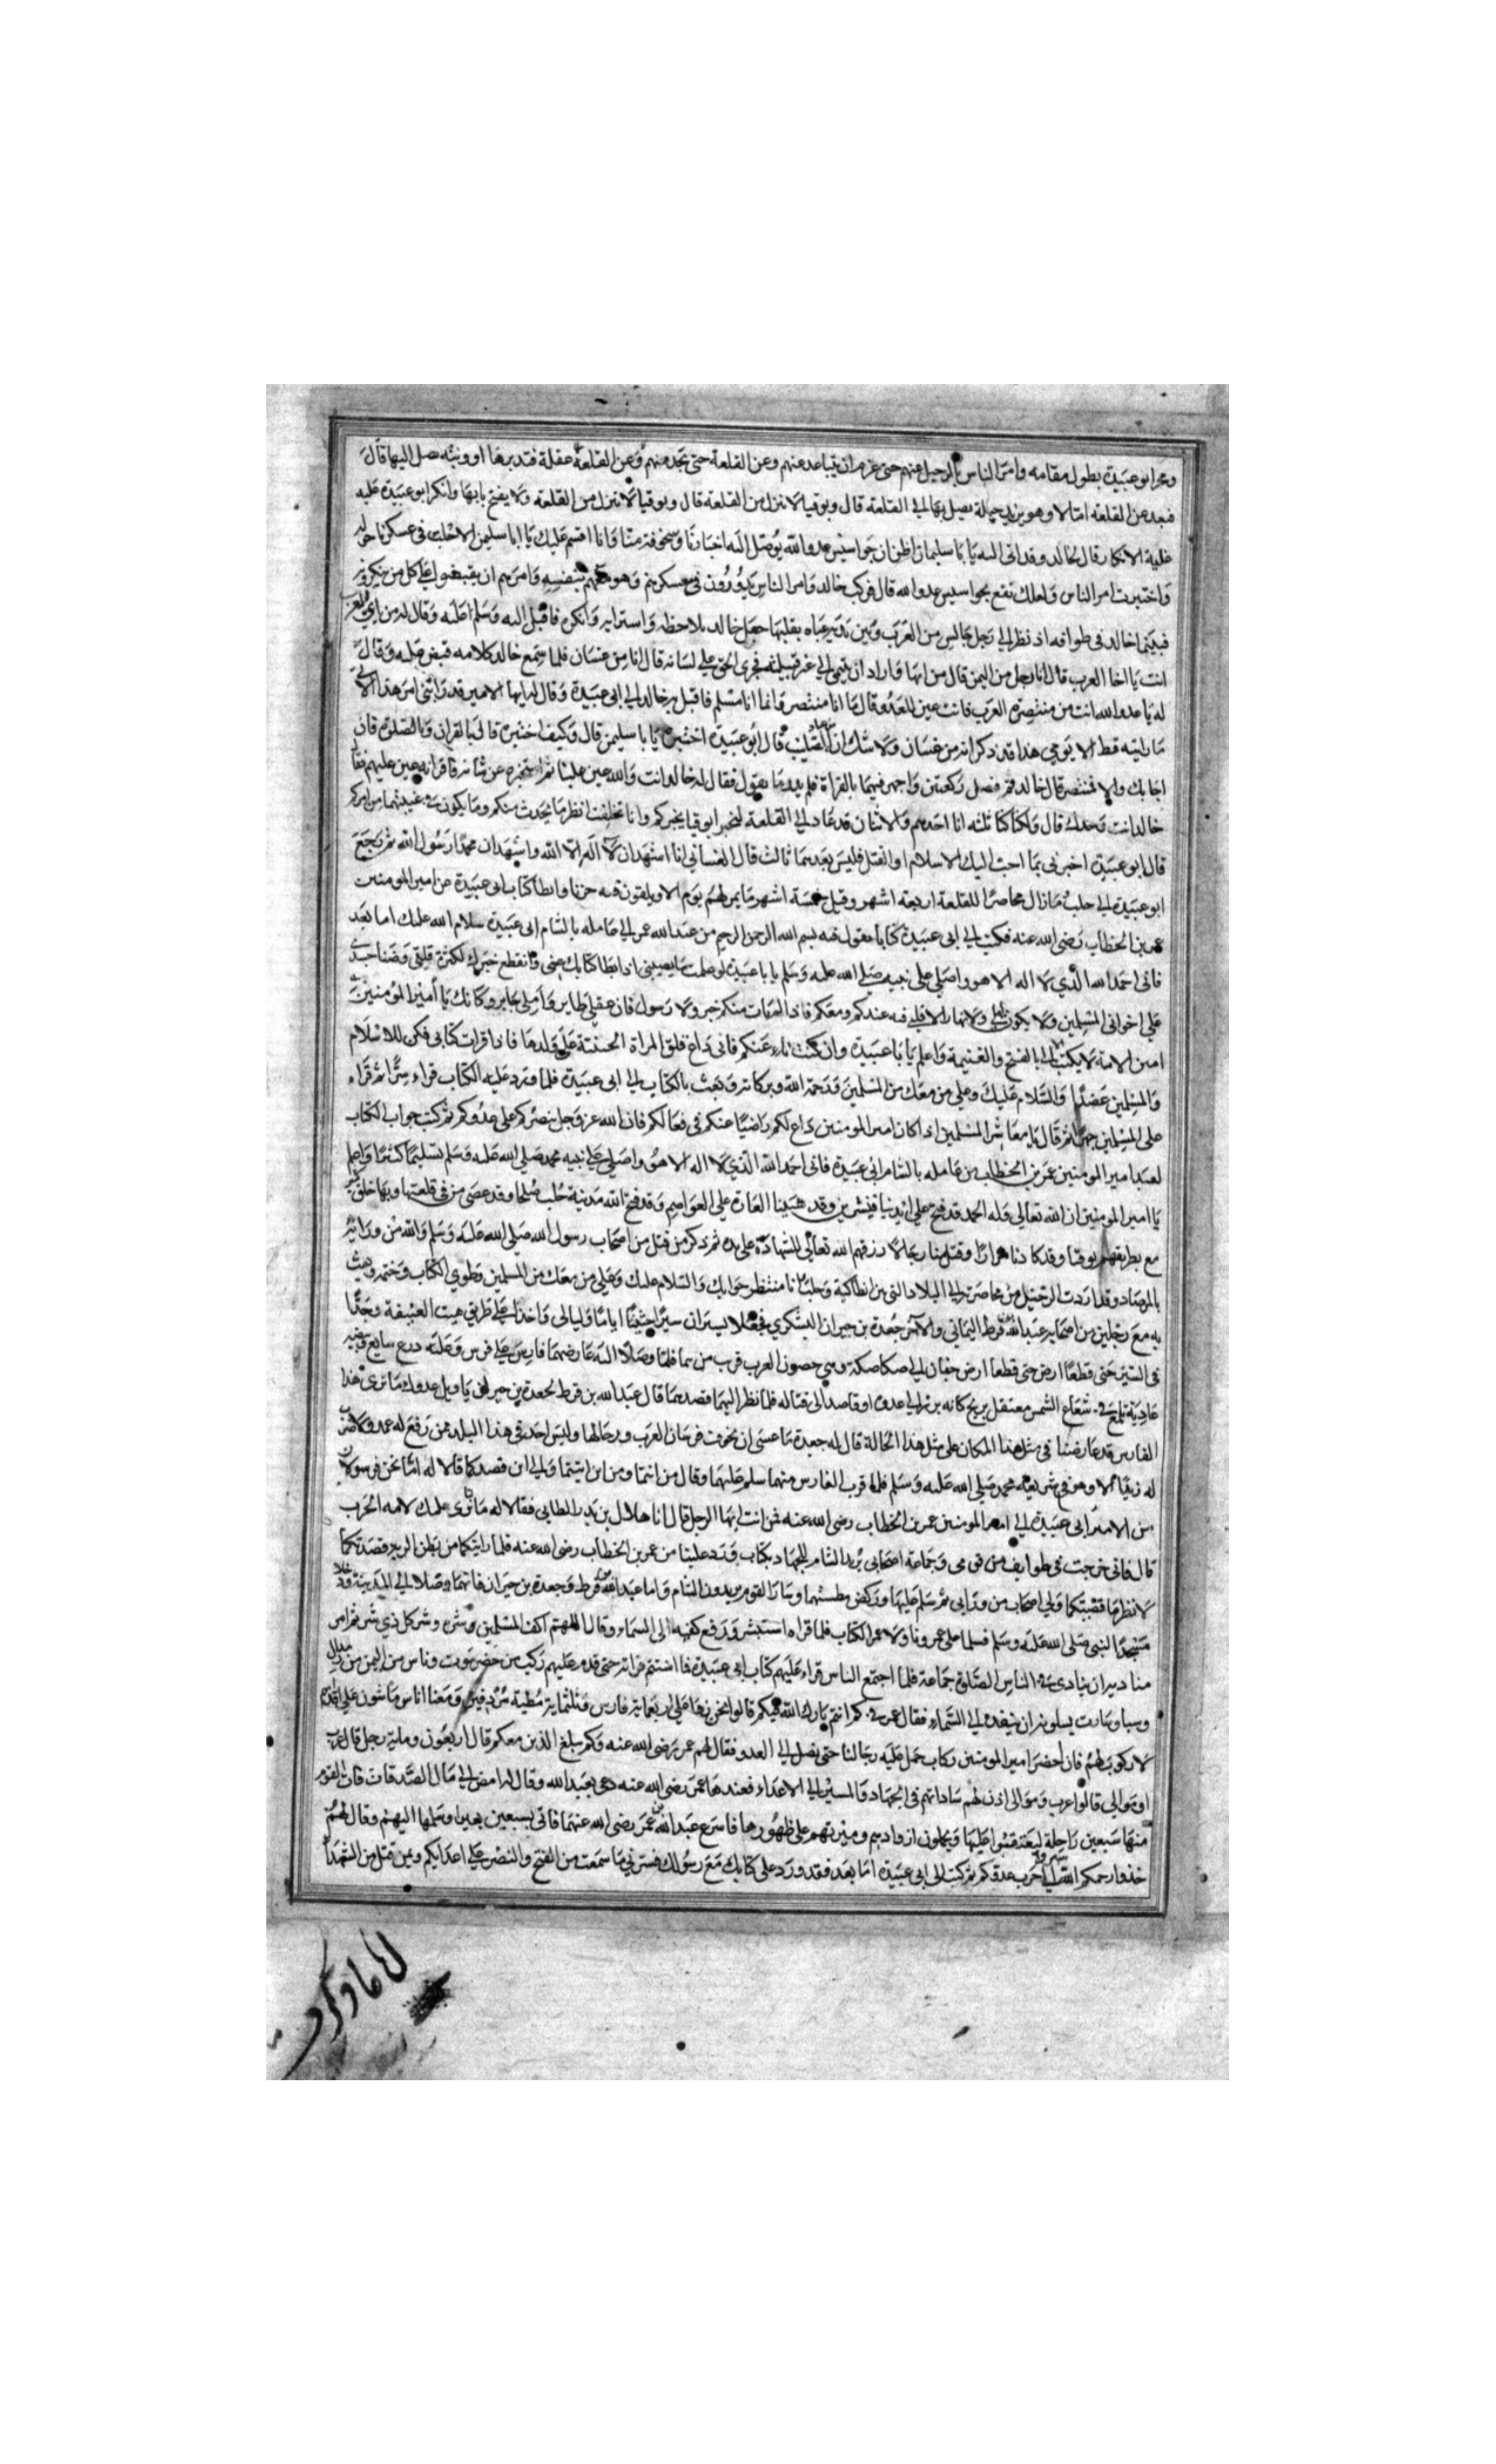 وعبر ابو عبيدة بطول مقامه وامر الناس بالرحيل عنهم حتى عزم ان يتباعد عنهم وعن القلعة حتى يجد منهم وعن القلعة غفلة فتدبرها او وثبة يصل اليها قال
فبعد عن القلعة اميالا وهو يريد حيلة يصل بها الى القلعة قال ويوقنا لا ينزل من القلعة ولا يفتح بابها وانكر ابو عبيدة عليه
غلبة الانكار وقال لخالد وقد اتى اليه يا با سليمان اظن ان جواسيس عدو الله يوصل اليه اخبارنا وانا اقسم عليك يا ابا سليمن الا خليت في عسكرنا
واختبرت امر الناس ولعلك تقع بجواسيس عدو الله قال فركب خالد وامر الناس يدورون في عسكرهم وهو معهم بنفسه وامرهم ان يقبضوا على كل من ينكروه
فبينما خالد في طوافه اذ نظر الى رجل جالس من العرب وبين يديه عباه يقلبها جعل خالد يلاحظه واسترابه وانكره فاقبل اليه وسلم عليه وقال له من اي العرب
انت يا اخا العرب قال انا رجل من اليمن قال من ايها فاراد ان ينتمي الى غير قبيلته فجرى الحق على لسانه قال انا من غسان فلما سمع خالد كلامه قبض عليه وقال
له يا عدو الله انت من منتصرة العرب فانت عين للعدو قال ما انا منتصر وانما انا مسلم فاقبل به خالد الى ابي عبيدة وقال له ايها الامير قد رابني امر هذا لاني
ما رايته قط الا يومي هذا وقد ذكر انه من غسان ولا شك انه من عباد الصليب قال ابو عبيدة اختبره يا با سليمن قال وكيف اختبره قال بالقران وبالصلوة فان
اجابك والا فمنتصر قال خالد قم فصل ركعتين واجهر فيهما بالقراة فلم يدر ما يقول فقال له خالد انت والله عين علينا ثم استخبره عن شانه فاقر انه عين عليهم فقال
خالد انت وحدك قال ولكنا كنا ثلثه انا احدهم والاثنان قد عاد الى القلعة لنخبر يوقنا بخبركم وانا تخلفت انظر ما يحدث منكم وما يكون في غيبتهما من امركم
قال ابو عبيدة اخبرني بما احب اليك الاسلام او القتل فليس بعدهما ثالث قال الغساني انا اشهد ان لا اله الا الله واشهد ان محمدا رسول الله ثم رجع
ابو عبيدة الى حلب وما زال محاصرا للقلعة اربعة اشهر وقيل خمسة اشهر ما يمر لهم يوم الا ويلقون فيه حزنا وابطا كتاب ابي عبيدة عن امير المومنين
عمر بن الخطاب رضى الله عنه فكتب الى ابي عبيدة كتابا يقول فيه بسم الله الرحمن الرحيم من عبد الله عمر الى عامله بالشام ابي عبيدة سلام الله عليك اما بعد
فاني احمد الله الذي لا اله الا هو واصلي على نبيه صلى الله عليه وسلم يا با عبيدة لو علمت ما يصيبني اذ ابطا كتابك عني وانقطع خبرك لكثرة قلقي وضنا جسدي
على اخواني المسلمين ولا يكون ليلي ولا نهار الا قلبي فيه عندكم ومعكم فاذا لم يات منكم خبر ولا رسول فان عقلي طاير وكانك يا امير المومنين
امين الامة لا يكتب الي الا بالفتح والغنيمة واعلم يا با عبيدة وان كنت ناء عنكم فاني داع قلق المراة الحنينة على ولدها فاذا قرات كتابي فكن للاسلام
والمسلمين عضدا والسلام عليك وعلى من معك من المسلمين ورحمة الله وبركاته وبعث بالكتاب الى ابي عبيدة فلما ورد عليه الكتاب قراه سرا ثم قراه
على المسلمين جهرا ثم قال يا معاشر المسلمين اذا كان امير المومنين داع لكم راضيا عنكم في فعالكم فان الله عز وجل ينصركم على عدوكم ثم كتب جواب الكتاب
لعبد امير المومنين عمر بن الخطاب من عامله بالشام ابي عبيدة فاني احمد الله الذي لا اله الا هو واصلي على نبيه محمد صلى الله عليه وسلم تسليما كثيرا واعلم
يا امير المومنين ان الله تعالى وله الحمد قد فتح على ايدينا قنسرين وقد شنينا الغارة على العواصم وقد فتح الله مدينة حلب صلحا وقد عصى من في قلعتها وبها خلق كثير
مع بطريقهم يوقنا وقد كادنا مرارا وقتل منا رجالا رزقهم الله تعالى الشهادة على يده ثم ذكر من قتل من اصحاب رسول الله صلى الله عليه وسلم والله من ورائه
بالمرصاد وقد اردت الرحيل من محاصرته الى البلاد التي بين انطاكية وحلب وانا منتظر جوابك والسلام عليك وعلى من معك من المسلمين وطوي الكتاب وختمه وبعث
به مع رجلين من اصحابه عبد الله بن قرط اليماني والاخر جعدة بن جبران اليشكري فجعلا يسيران سيرا حثيثا اياما وليالي واخذا على طريق هيت العتيقة وجدا
في السير حتى قطعا ارض حتى قطعا ارض حفان الى صكاصكة وهي حصون العرب قرب من تيما فلما وصلا اليه عارضهما فارس على فرس وعليه درع سابغ
عادية تلمع في شعاع الشمس معتقل برمح كانه برز الى عدوه او قاصد الى قتاله فلما نظر اليهما قصدهما قال عبد الله بن قرط لجعدة بن جبران يا ويل عدوك ما ترى هذا
الفارس قد عارضنا في مثل هذا المكان على مثل هذه الحالة قال له جعدة ما عسى ان يخوف فرسان العرب ورجالها وليس احد في هذا البلد ممن رفع له عمدا
الا وهو في شريعة محمد صلى الله عليه وسلم فلما قرب الفارس منهما سلم عليهما وقال من انتما ومن اين اتيتما والى اين قصدكما قالا له اننا نحن رسولان
من الامير ابي عبيدة الى امير المومنين عمر بن الخطاب رضى الله عنه فمن انت ايها الرجل قال انا هلال بن بدر الطايي فقالا له ما نرى عليك لامة الحرب
قال فاني خرجت في طوايف من قومي وجماعة اصحابي نريد الشام للجهاد بكتاب ورد علينا من عمر بن الخطاب رضى الله عنه فلما رايتكما من بطن قصدتكما
لانظر ما قصتكما ولي اصحاب من ورايي ثم سلم عليها وسار القوم يريدون الشام واما عبد الله بن قرط وجعدة بن جبران فانهما وصلا الى المدينة ودخلا
مسجد النبي صلى الله عليه وسلم فسلما على عمر وناولا عمر الكتاب فلما قراه استبشر ورفع كفيه الى السماء وقال اللهم اكف المسلمين شره وشر كل ذي شر ثم امر
مناديه ان ينادي في الناس الصلوة جماعة فلما اجتمع الناس قراء عليهم كتاب ابي عبيدة فما استتم قراته حتى قدم عليهم ركب من حضرموت وناس من اليمن من
وسبا ومارب يسلونه ان ينفذهم الى الشام فقال عمر كم انتم بارك الله فيكم قالوا نحن زهاء على اربعماية فارس وثلثماية مطية مردفين ومعنا اناس ماشون على اقدامهم
لا ركوب لهم فان احضر امير المومنين ركاب حمل عليه رجالنا حتى نصل الى العدو فقال لهم عمر رضى الله عنه وكم مبلغ الذين معكم قال اربعون وماية رجل قال عرب
او موالي قالوا عرب وموالي اذن لهم ساداتهم في الجهاد والمسير الى الاعداء فعندها عمر رضى الله عنه دعى بعبد الله وقال له امض الى مال الصدقات فات القوم
منها سبعين راحلة ليعتقبوا عليها ويحملون ازوادهم وميرتهم على ظهورها فاسرع عبد الله بن عمر رضى الله عنهما فاتى بسبعين بعيرا وسلمها اليهم وقال لهم
خذوا رحمكم الله سيروا الى حرب عدوكم ثم كتب الى ابي عبيدة اما بعد فقد ورد علي كتابك مع رسولك فسرني ما سمعت من الفتح والنصر على اعدايكم ومن قتل من الشهدا